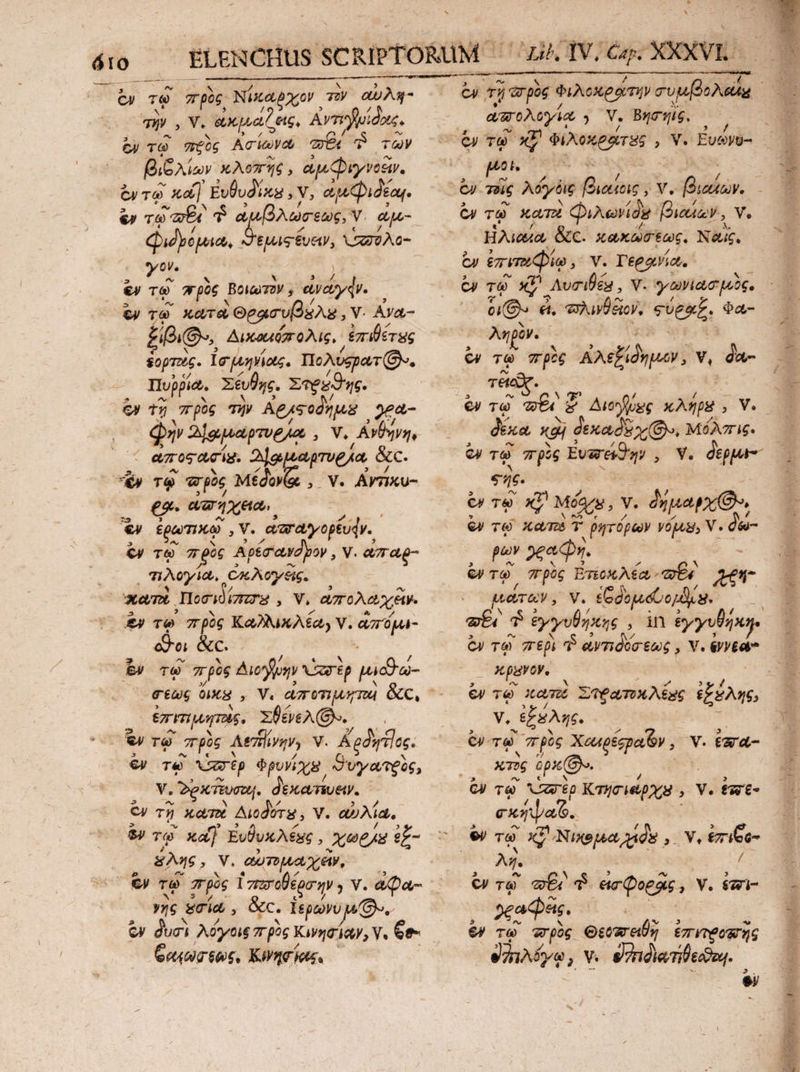 610 ELENCHUS SCRIPTORUM Lib. IV. Cap. XXXVI.
ἐν τῷ πρὸς Νίκαρχον τὸν αὐλη-
τὴν , V. ἀκμάζεις. Ἀντιγμίδας.
ἐν τῷ πρὸς Ἀσίωνα περὶ τῆς τῶν
βιβλίων κλοπῆς , ἀμφιγνοεῖν.
ἐν τῷ κατ' Εὐθυδίκου , V, ἀμφιδέαι.
ἐν τῷ περὶ τῆς ἀμβλώσεως, V. ἀμ-
φιδρόμια. θεμιστεύειν, ὑπόλο-
γον.
ἐν τῷ πρὸς Βοιωτὸν , ἀνάγειν.
ἐν τῷ κατὰ Θρασυβούλου , V. Ἀνα-
ξίβιος, Δικαιόπολις. ἐπιθέτους
ἑορτὰς. ἰσμηνίας. Πολύστρατος.
Πυρρία. Σεύθης. Στρούθης.
ἐν τῇ πρὸς τὴν Ἀριστοδήμου γρα-
φὴν Διαμαρτυρίᾳ , V. Ἀνθήνη.
ἀποστασίου. Διαμαρτυρία &c.
ἐν τῷ πρὸς Μέδοντα , V. Ἀντικυ-
ρα. ἀπηχεια.
ἐν ἐρωτικῷ , V. ἀπαγορεύειν.
ἐν τῷ πρὸς Ἀρέσανδρον , V. ἀπαρ-
τιλογία. ἐκλογεῖς.
κατὰ Ποσιδίππου , V. ἀπολαχεῖν.
ἐν τῷ πρὸς Καλλικλέα, V. ἀπόμι-
σθοι &c.
ἐν τῷ πρὸς Διογένην ὑπὲρ μισθώ-
σεως οἴκου , V. ἀποτιμηταὶ &c.
ἐπιτιμητὰς. Σθένελος.
ἐν τῷ πρὸς Λεπτίνην, V. Ἄρδηττος.
ἐν τῷ ὑπὲρ Φρυνίχου θυγατρὸς,
V. ἀρκτεῦσαι, δεκατεύειν.
ἐν τῇ κατὰ Διοδότου, V. αὐλία.
ἐν τῷ κατ' Εὐθυκλέους , χωρίου ἐξ-
ούλης , V. αὐτομαχεῖν.
ἐν τῷ πρὸς Ἱπποθέρσην , V. ἀφα-
νὴς οὐσία , &c. ἱερώνυμος.
ἐν δυσὶ λόγοις πρὸς Κινησίαν, V.
Κινησίας.
ἐν τῇ πρὸς Φιλοκράτην συμβολαίου
ἀπολογίᾳ , V. Βησηίς.
ἐν τῷ κατὰ Φιλοκράτους , V. Εὐώνυ-
μοι.
ἐν τοῖς λόγοις βιαίοις , V. βιαίων.
ἐν τῷ κατὰ Φιλωνίδου βιαίων, V.
Ἡλιαία &c. κακώσεως. Ναΐς.
ἐν ἐπιταφίῳ , V. Γεράνια.
ἐν τῷ κατὰ Λυσιθέου , V. γωνιασμὸς.
οἷος εἶ. πλινθεῖον. στύραξ. Φά-
ληρον.
ἐν τῷ πρὸς Ἀλεξίδημον , V. δα-
τεῖσθαι.
ἐν τῷ περὶ τοῦ Διογένους κλήρου , V.
δέκα καὶ δεκαδοῦχος. Μόλπις.
ἐν τῷ πρὸς Εὐπείθην , V. δερμη-
στής.
ἐν τῷ κατὰ Μόσχου , V. δήμαρχος.
ἐν τῷ κατὰ τῶν ῥητόρων νόμου, V. δώ-
ρων γραφή.
ἐν τῷ πρὸς Ἐτεοκλέα περὶ χρη-
μάτων , V. ἑβδομευομένου.
περὶ τῆς ἐγγυθήκης , in ἐγγυθήκη.
ἐν τῷ περὶ τῆς ἀντιδόσεως , V. ἐννεά-
κρουνον.
ἐν τῷ κατὰ Στρατοκλέους ἐξούλης,
V. ἐξούλης.
ἐν τῷ πρὸς Χαιρέστρατον , V. ἐπα-
κτὸς ὅρκος.
ἐν τῷ ὑπὲρ Κτησιάρχου , V. ἐπε-
σκήψατο.
ἐν τῷ κατὰ Νικομαχίδου , V. ἐπιβο-
λή.
ἐν τῷ περὶ τῆς εἰσφορᾶς , V. ἐπι-
γραφεῖς.
ἐν τῷ πρὸς Θεοπείθη ἐπιτροπῆς
ἐπιλόγῳ , V. ἐπιδιατίθεσθαι.
ἐν